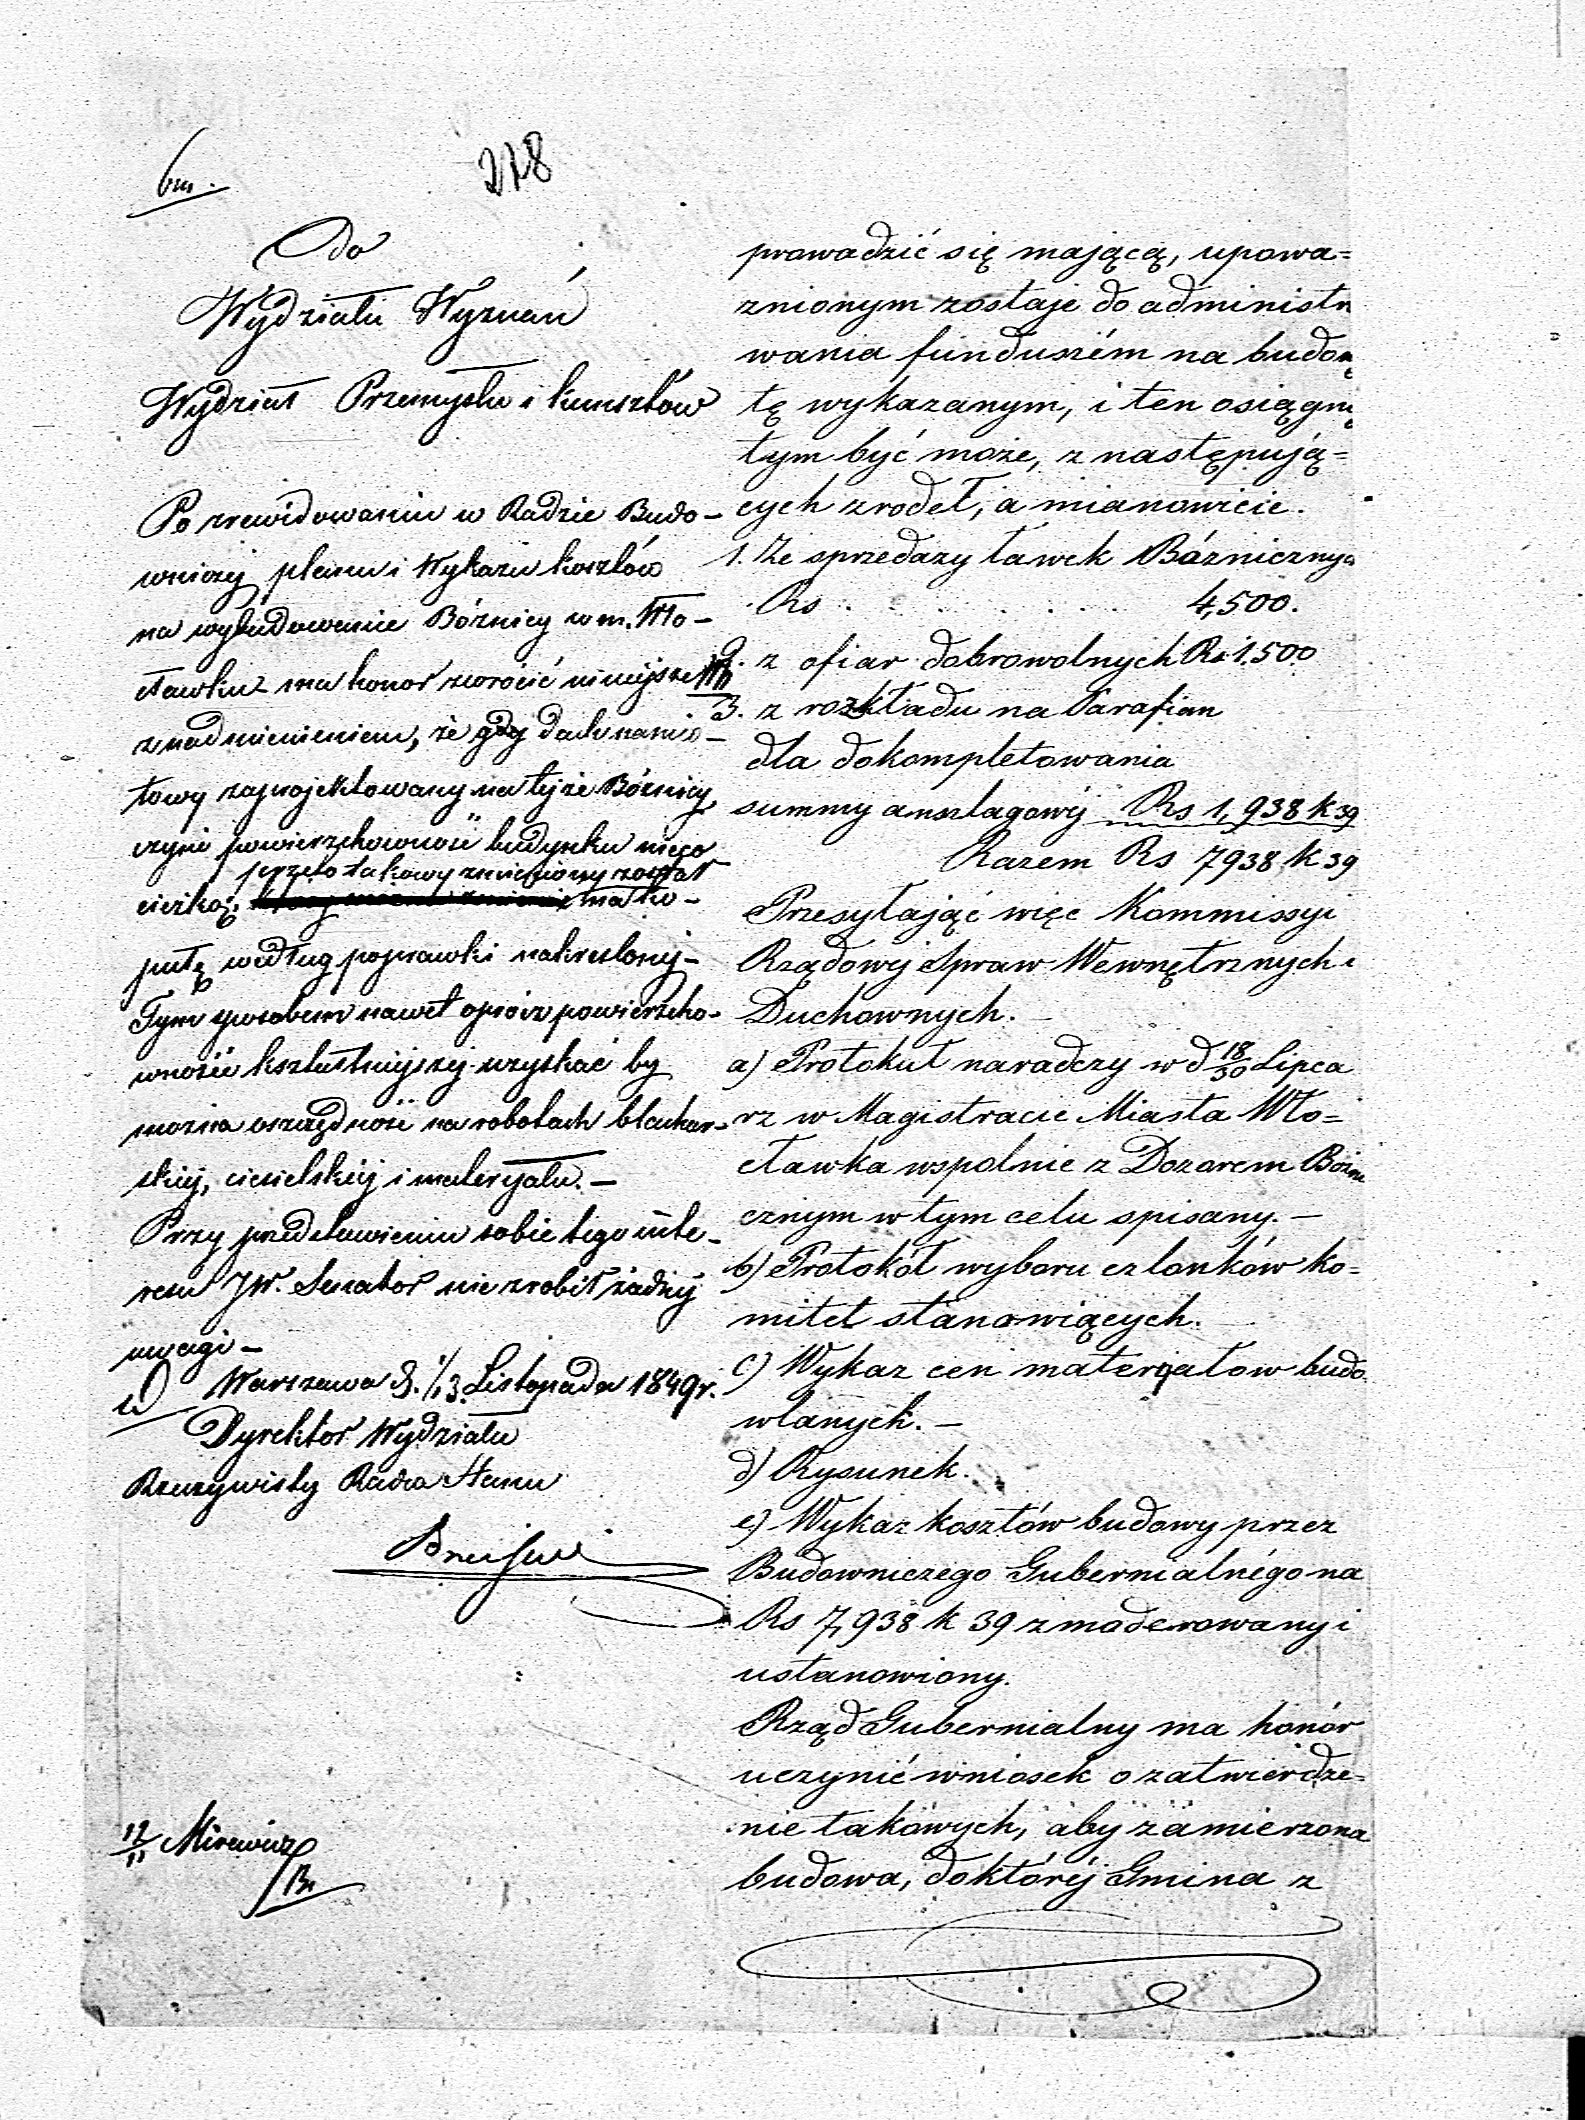 218
Do
Wydziału Wyznań
Wydział Przemysłu i Kunsztów
Po zrewidowaniu w Radzie Budo-
wniczej planu i Wykazu kosztów
na wybudowanie Bóżnicy w m. Wło-
cławku ma honor zwrócić niniejsze
z nadmienieniem, że gdy dach namio-
towy zaprojektowany na tejże Bóżnicy
czyni powierzchowność budynku nieco
przeto takowy zmieniony został
ciężką, na ko-
pułę według poprawki nakreslonej-
Tym sposobem nawet oprócz powierzcho-
wności kształtniejszej uzyskać by
można oszczędność na robotach blachar-
skiej, ciesielskiej i materyału. -
Przy przedstawieniu sobie tego inte-
resu JW. Senator nie zrobił żadnej
uwagi -
Warszawa d. 1/13 Listopada 1849 r.
Dyrektor Wydziału
Rzeczywisty Radca Stanu
12/11 Mirewicz
prowadzić się mającą, upowa=
znionym zostaje do administr
wania funduszém na budow
tę wykazanym, i ten osiągnię
tym być może, z następują=
cych zrodeł, a mianowicie.
1. Ze sprzedazy ławek Bóżnicznych
Rs . . . . . . 4,500.
2. z ofiar dobrowolnych Rs 1.500
3. z rozkładu na Parafian
dla dokompletowania
summy anszlagowéj Rs 1,938 k 39
Razem Rs 7938 k 39
Przesyłając więc Kommissyi
Rządowej Spraw Wewnętrznych i
Duchownych. -
a) Protokuł naradczy w d 18/30 Lipca
rz w Magistracie Miasta Wło=
cławka wspolnie z Dozorem Bóżni
cznym w tym celu spisany. -
b) Protokół wyboru członków ko=
mitet stanowiących.
c) Wykaz cen materyałow budo.
wlanych. -
d) Rysunek.
e) Wykaz kosztów budowy przez
Budowniczego Gubernialnégo na
Rs 7,938 k 39 zmoderowany i
ustanowiony.
Rząd Gubernialny ma honór
uczynić wniosek o zatwierdze-
nie takowych, aby zamierzona
budowa, do któréj Gmina z